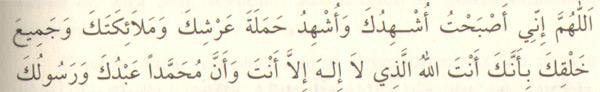 اَللَّهُمَّ إِنِّي أَصْبَحْتُ أُشْهِدُكَ وَأُشْهِدُ حَمَلَةَ عَرْشِكَ وَمَلاَئِكَتَكَ وَجَمِيعَ
خَلْقِكَ بِأَنَّكَ أَنْتَ اللهُ الَّذِي لاَ إِلـهَ إِلاَّ أَنْتَ وَأَنَّ مُحَمَّداً عَبْدُكَ وَرَسُولُكَ